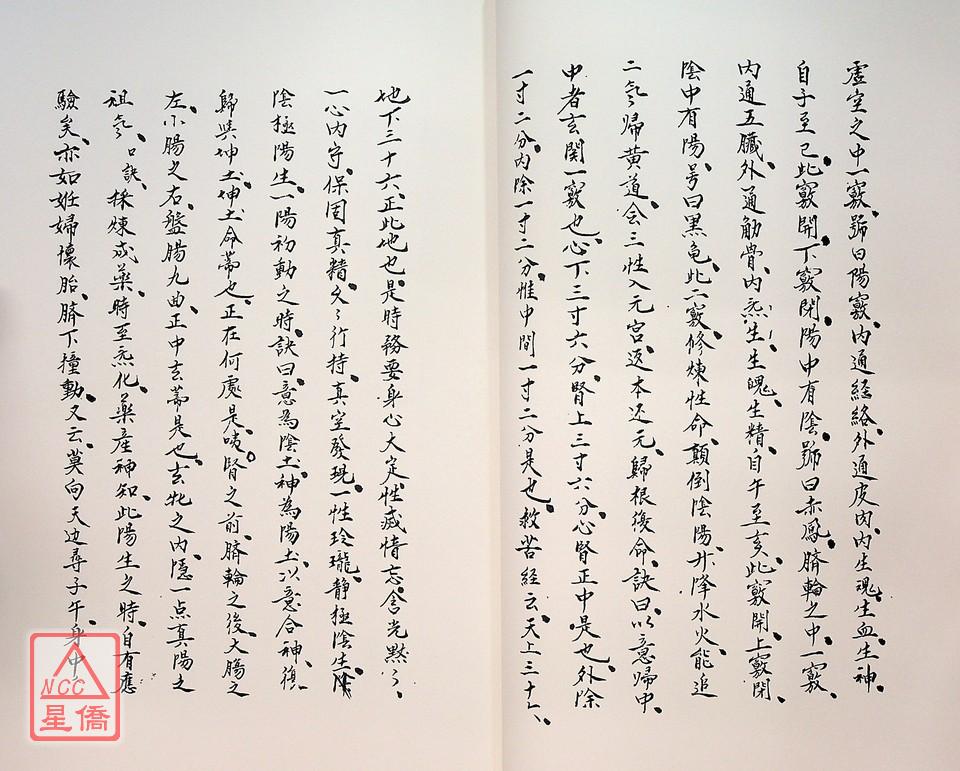 虛室之中一竅、號曰陽竅、內通經絡、外通皮肉、內生魂、生血、生神、
自子至巳、此竅開、下竅閉、陽中有陰、號曰赤鳳、臍輪之中、一竅、
內通五臟、外通觔骨、內炁生、生魄、生精、自午至亥、此竅開、上竅閉、
陰中有陽、号曰黑龟、此二竅、修煉性命、顛倒陰陽、升降水火、能追
二氣歸黃道、会三性入元宮、返本还元、歸根復命、訣曰、以意歸中、
中者玄関一竅也、心下三寸六分、腎上三寸六分、心腎正中是也、外除
一寸二分、內除一寸二分、惟中間一寸二分是也、救苦經云、天上三十六、
地下三十六、正此地也、是時務要身心大定、性滅情忘、含光默々、
一心內守、保固真精、久々行持、真空發現、一性玲瓏、靜極陰生、
陰極陽生、一陽初動之時、訣曰、意為陰土、神為陽土、以意合神、復
歸與坤土、坤土命蒂也、正在何處是、咦。腎之前、臍輪之後、大腸之
左、小腸之右、盤腸九曲、正中玄蒂是也、玄牝之內、隱一点真陽之
祖氣、口訣、採煉成藥、時至炁化、藥產神知、此陽生之時、自有應
驗矣、亦如妊婦懷胎、臍下撞動、又云、莫向天边尋子午、身中
NCC
星僑